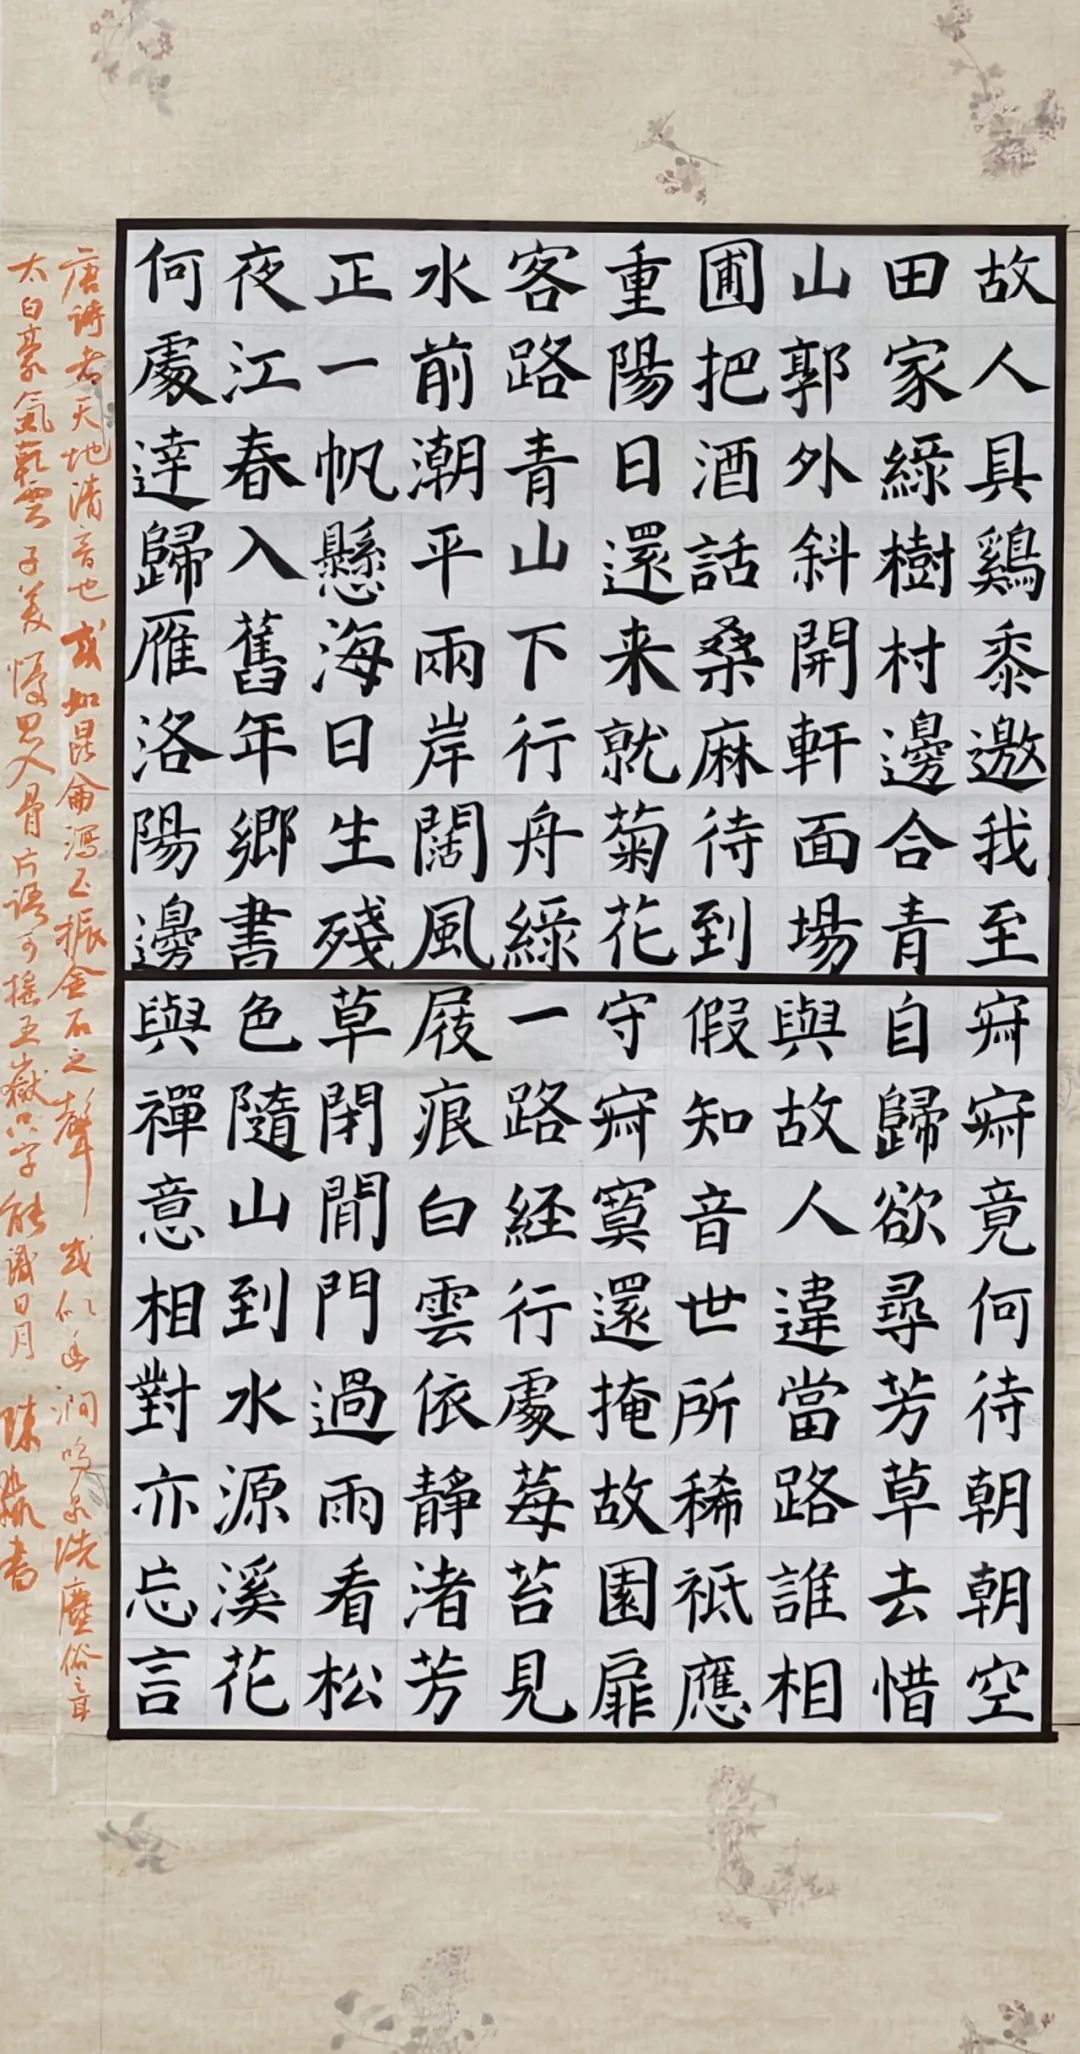 故人具鷄黍邀我至
田家綠樹村邊合青
山郭外斜開軒面場
圃把酒話桑麻待到
重陽日還来就菊花
客路青山下行舟綠
水前潮平兩岸闊風
正一帆懸海日生殘
夜江春入舊年鄉書
何處達歸雁洛陽邊
寂寂竟何待朝朝空
自歸欲尋芳草去惜
與故人違當路誰相
假知音世所稀祗應
守寂寞還掩故園扉
一路経行處莓苔見
屐痕白雲依静渚芳
草閉閒門過雨看松
色隨山到水源溪花
與禪意相對亦忘言
唐詩者天地清音也或如昆侖瀉玉振金石之聲或似幽澗鳴泉洗塵俗之耳
太白豪氣乾雲子美思入骨片語可搖五嶽只字能識日月 陳書